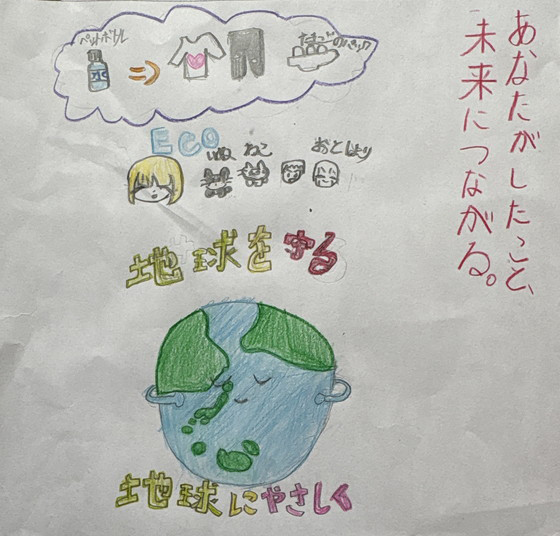 あなたがしたこと、
未来につながる。
ペットボトル
水
たまごのパック
Eco
いぬ
ねこ
おとしより
地球を守る
地球にやさしく